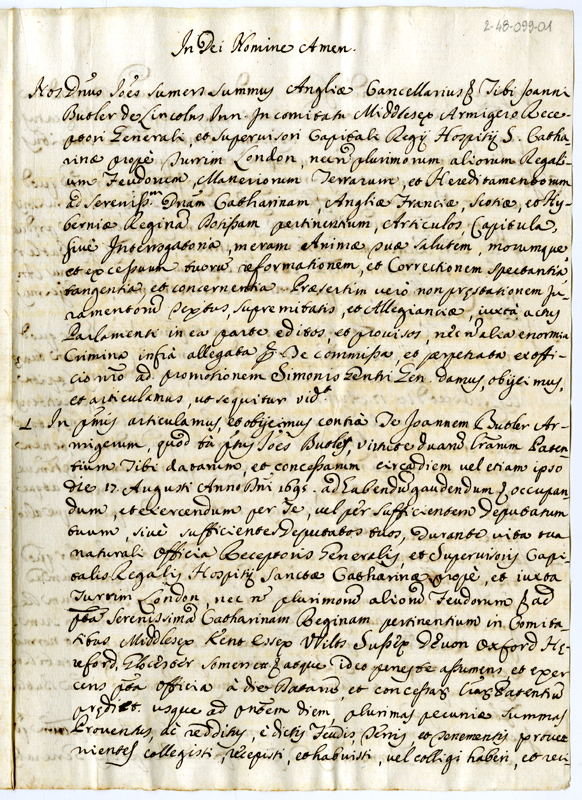 2-48-099-01
In Dei Nomine Amen.
Nos Dnus Joes Sumers Summus Angliæ Cancellarius & Tibi Joanni
Butler de Lincolns Inn. In Comitatu Middlesex Armigero Rece-
ptori Generali, et Supervisori Capitali Regij Hospitij S. Catha-
rinæ prope Turrim London, necn plurimorum aliorum Regali-
um Feudorum, Maneriorum Terrarum, et Hereditamentorum
ad Sereniss: Dnam Catharinam, Angliæ Franciæ, Scotiæ, et Hy-
berniæ Reginam Dotissam pertinentium, Articulos, Capitula,
sive Interrogatoria, meram Animæ suæ salutem, morumque,
et excessuum tuoru reformationem, et Correctionem Spectantia
tangentia et concernentia Præsertim vero non præstationem Ju-
ramentoru Sextus, Supremitatis, et Allegianciæ, iuxta actus
Parlamenti in ea parte editos, et provisos, necn alia enormia
Crimina infra allegata & De commissa, et perpetrata ex offi-
cio nro ad promotionem Simonis Zentri Gen. damus, obijcimus,
et articulamus, ut sequitur vidt.
1 In pmis articulamus, et obijcimus contra Te Joannem Butler Ar-
migerum, quod tu ptus Joes Butler, virtute duaru Lrarum Paten-
tium Tibi datarum, et concessarum circa diem vel etiam ipso
die 17 Augusti Anno Dni 1695. ad habendu gaudendum & occupan
dum, et exercendum per Te, vel per sufficientem deputatum
tuum, sive sufficientes deputatos tuos, Durante vita tua
naturali Officia Receptoris Generalis, et Supervisoris Capi-
talis Regalis Hospitij Sanctæ Catharinæ prope, et iuxta
Turrim London, nec n plurimoru alioru Feudorum & ad
ptam Serenissima Catharinam Reginam pertinentium in Comita-
tibus Middlesex Kent Essex Wilts Sussex Devon Oxford He-
reford, Glocester Somerset & atque ideo penes te assumens, et exer
cens pta Officia à die Dataru, et concessaru Lraru Patentiu
predict usque ad pntem diem, plurimas pecuniæ Summas
Proventus, ac redditus, è dictis Feudis, Terris et Tenementis prove-
nientes collegisti, recepisti, et habuisti, vel colligi haberi, et reci